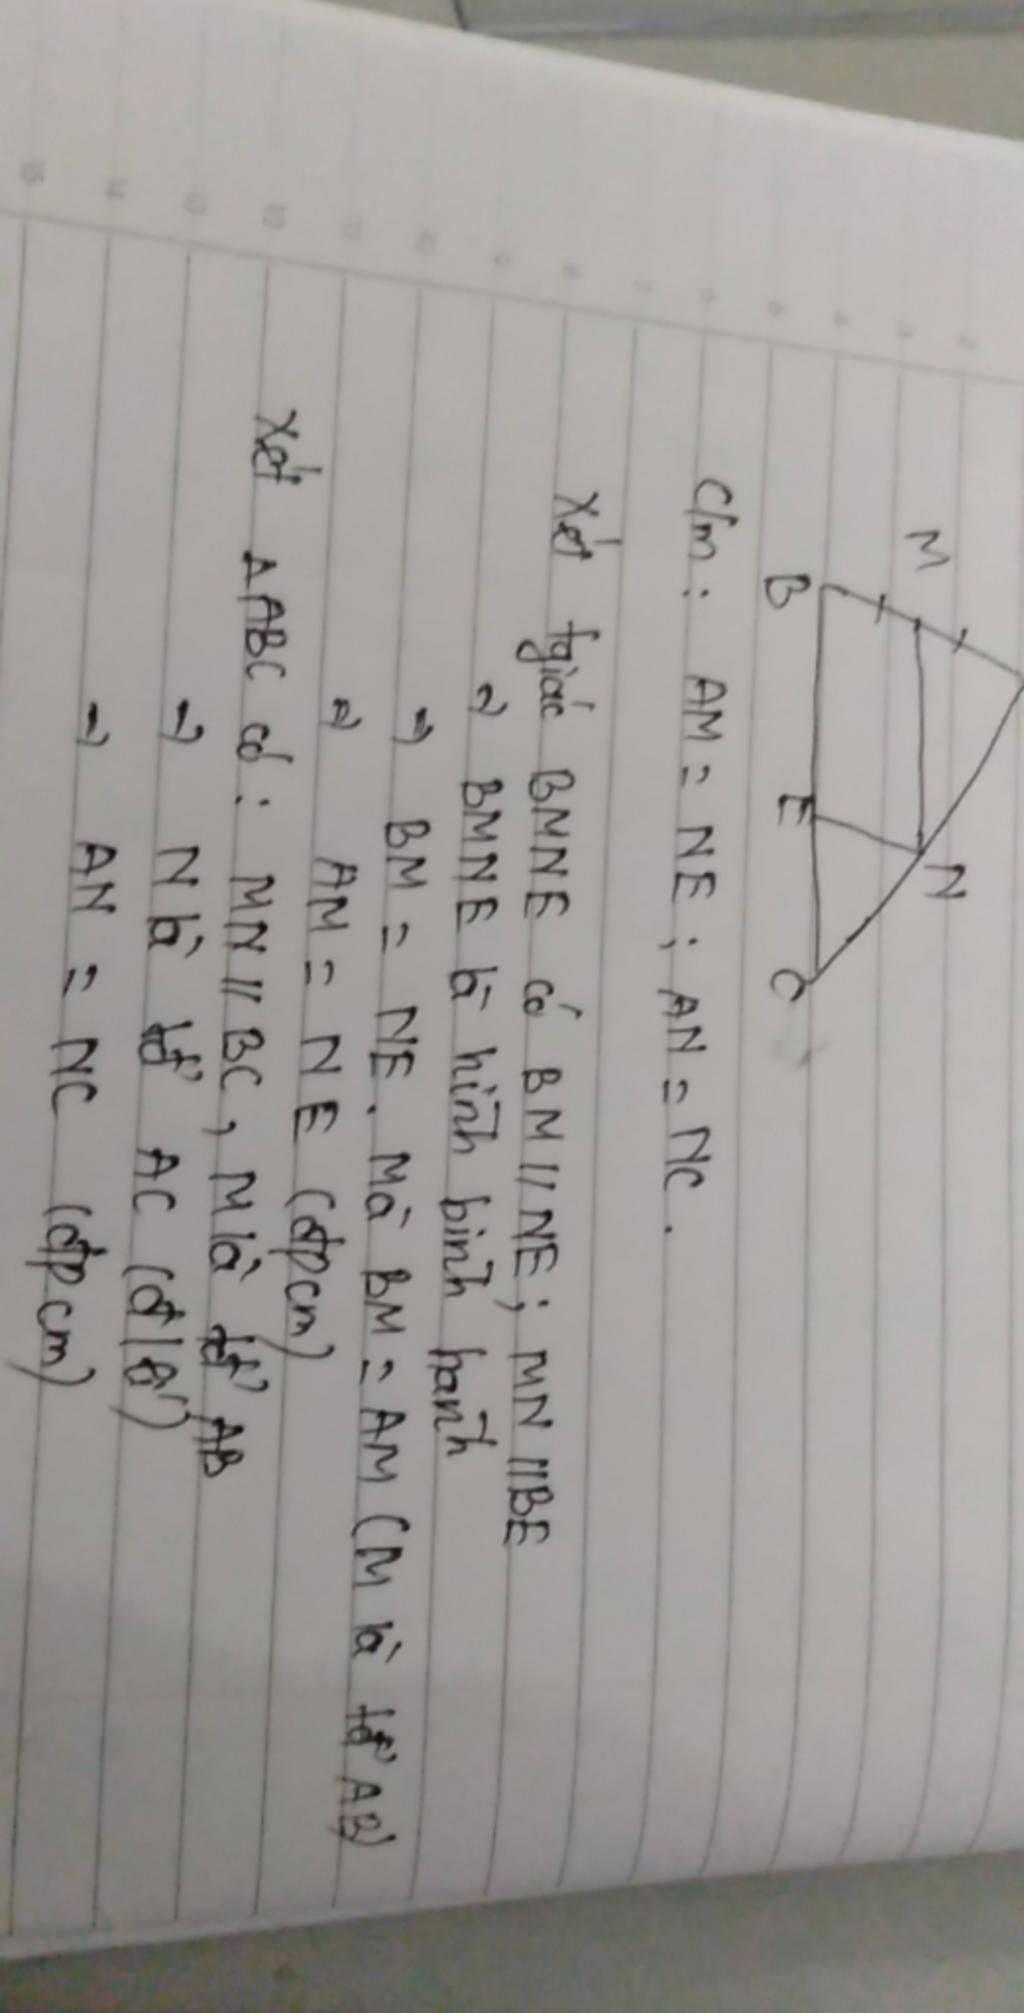 M
N
B
E
C
C/m : AM = NE ; AN = NC .
Xét tgiác BMNE có BM // NE ; MN // BE
→ BMNE là hình bình hành
→ BM = NE . Mà BM = AM (M là tđ AB)
→ AM = NE (đpcm)
Xét ΔABC có : MN // BC , M là tđ AB
→ N là tđ AC (đlí)
→ AN = NC (đpcm)